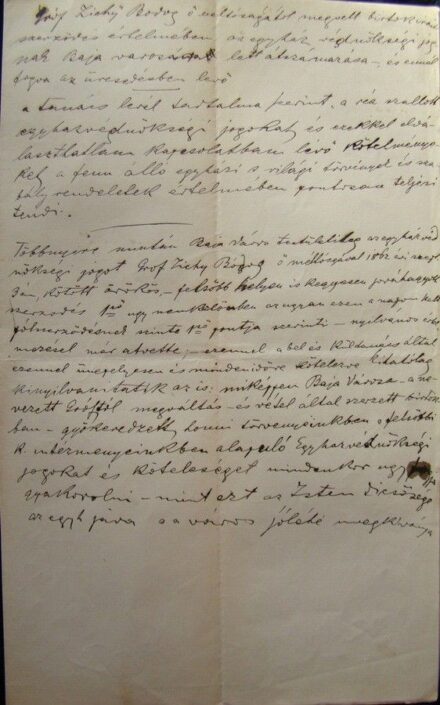 Gróf Zichy Bodog ő méltóságától megvett birtokra
szerződés értelmében az egyház védnökségi jog
nak Baja városára lett átszármazása – és ennél
fogva az üresedésben levő
a tanács levél tartalma szerint, a reá szállott
egyházvédnökségi jogokat és ezekkel elvá
laszthatlan kapcsolatban lévő kötelménye
ket a fenn álló egyházi s világi törvények és sza
bályrendeletek értelmében pontosan teljesí
tendi.
Többnyire miután Baja Város az egyház véd
nökségi jogot Gróf Zichy Bódog ő méltóságával 1862
kötött örökös – felsőbb helyen is kegyesen jóváhagyott
szerződés 1ső úgy nemkülönben az ugyan ezen a napon kelt
pótszerződésnek szinte 1ső pontja szerinti – nyilvános
mezéssel már átvette, – ezennel a bel és kültanács által
ezennel ünnepélyesen és mindenidőre kötelezőleg
kinyilváníttatik az is: miképpen Baja Városa – a ne
vezett Gróftól megváltás – és vétel által szerzett birtoká
ban – gyökeredzett, honni törvényeinkben s felsőbb
k. intézményeinkben alapuló Egyházvédnökségi
jogokat és kötelességet mindenkor úgy
gyakorolni – mint ezt az Isten dicsősége
az egyh java s a város jóléte megkívánja